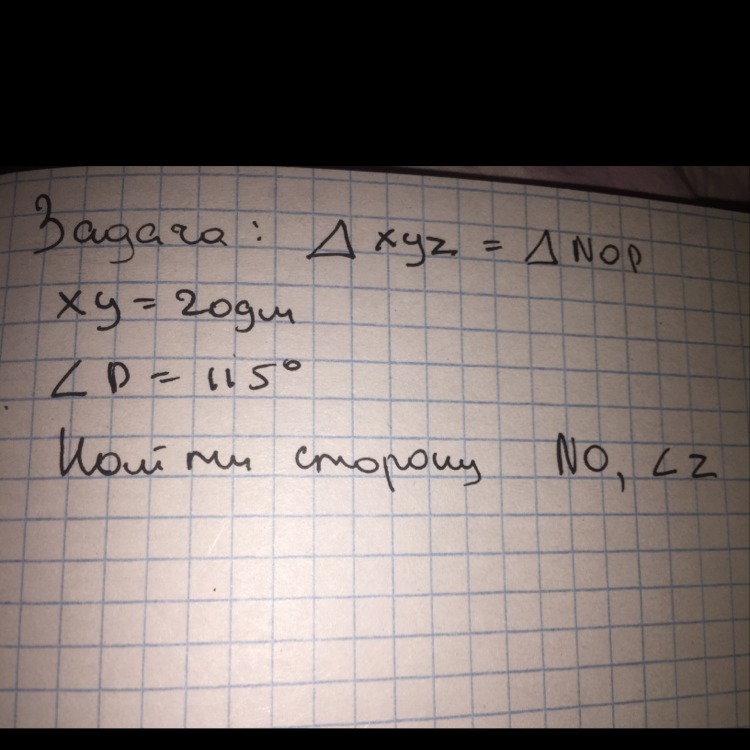 Задача: Δ xyz = Δ NOP
xy = 20дм
∠P = 115°
Найти сторону NO, ∠z